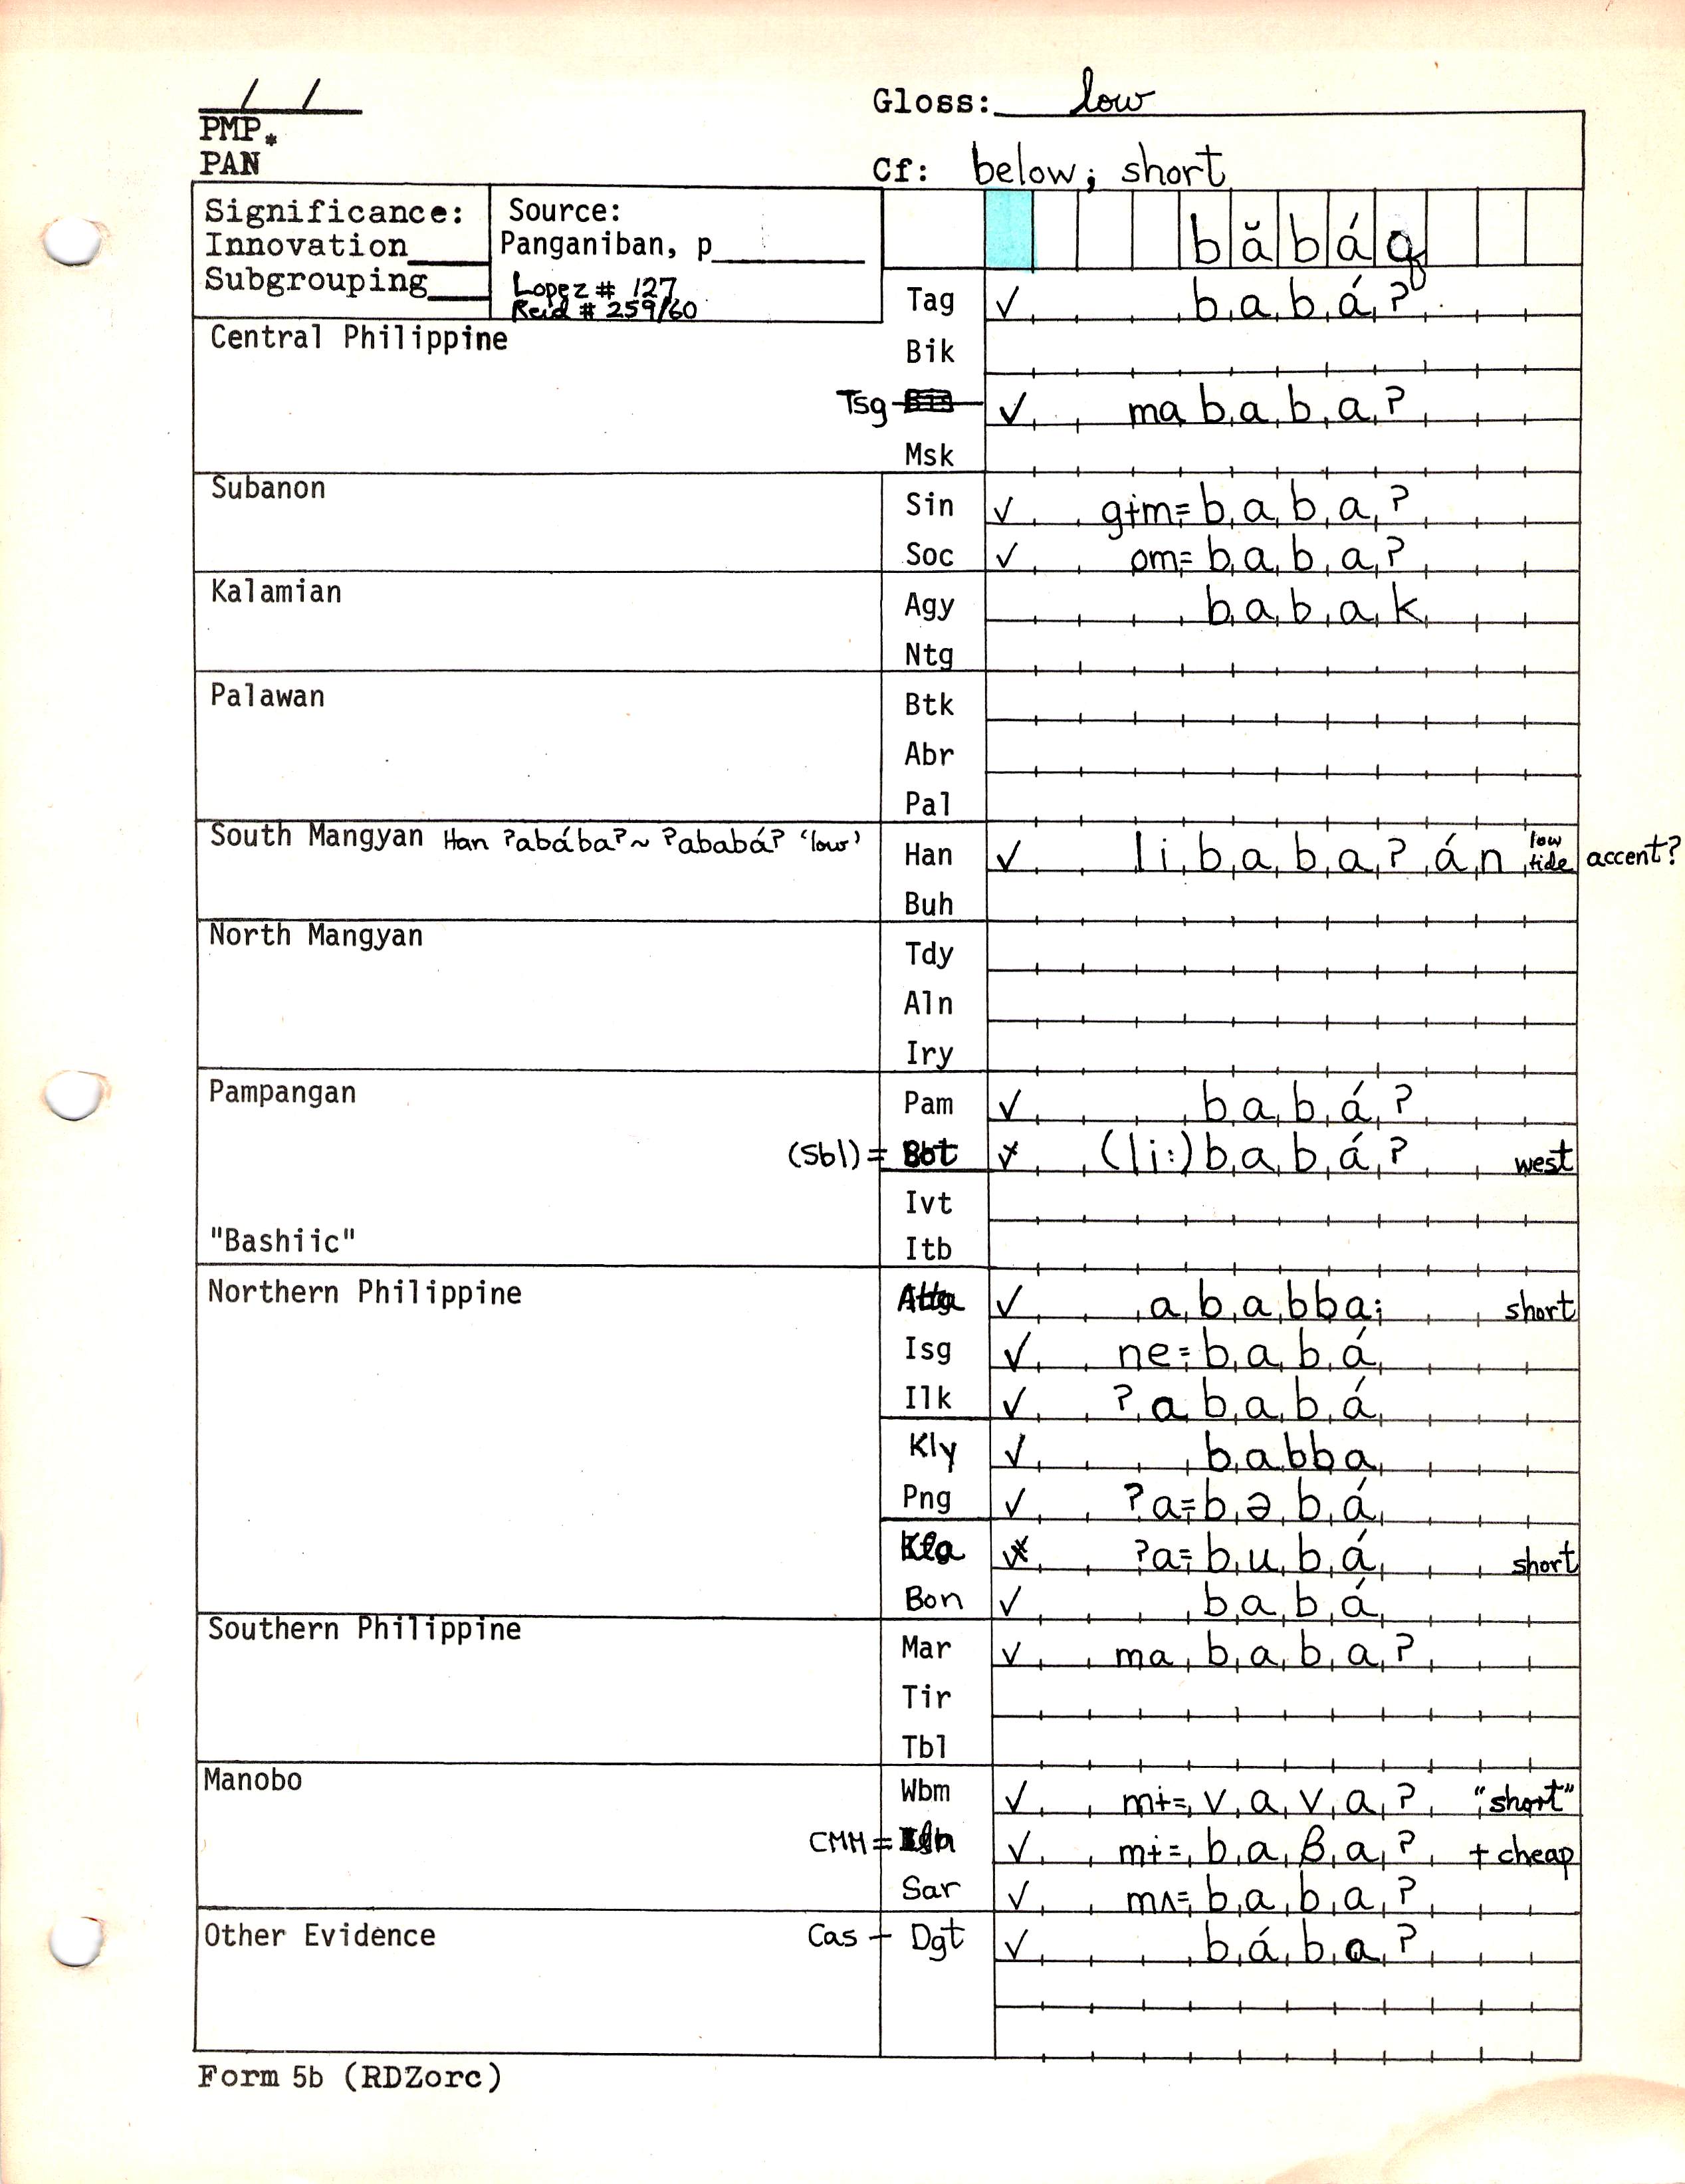 / /
Gloss: low
PMP*
PAN
Cf: below; short
Significance:
Innovation____
Subgrouping____
Source:
Panganiban, p________
Lopez # 127
Reid # 259/60
b ă b á q
Tag ✓ b a b á ʔ
Central Philippine
Bik
Tsg ✓ ma b a b a ʔ
Msk
Subanon
Sin ✓ gɨm= b a b a ʔ
Soc ✓ om= b a b a ʔ
Kalamian
Agy b a b a k
Ntg
Palawan
Btk
Abr
Pal
South Mangyan Han ʔabábaʔ ~ ʔababáʔ 'low'
Han ✓ l i b a b a ʔ á n low tide accent?
Buh
North Mangyan
Tdy
Aln
Iry
Pampangan
Pam ✓ b a b á ʔ
(Sbl) = Bot ✓ (li:) b a b á ʔ west
Ivt
"Bashiic"
Itb
Northern Philippine
Atta ✓ a b a bb a; short
Isg ✓ ne= b a b á
Ilk ✓ ʔ a b a b á
Kly ✓ b a bb a
Png ✓ ʔa= b ə b á
Kla ✓ ʔa= b u b á short
Bon ✓ b a b á
Southern Philippine
Mar ✓ ma b a b a ʔ
Tir
Tbl
Manobo
Wbm ✓ mɨ= v a v a ʔ "short"
CMM = ✓ mɨ= b a β a ʔ + cheap
Sar ✓ mʌ= b a b a ʔ
Other Evidence
Cas - Dgt ✓ b á b a ʔ
Form 5b (RDZorc)